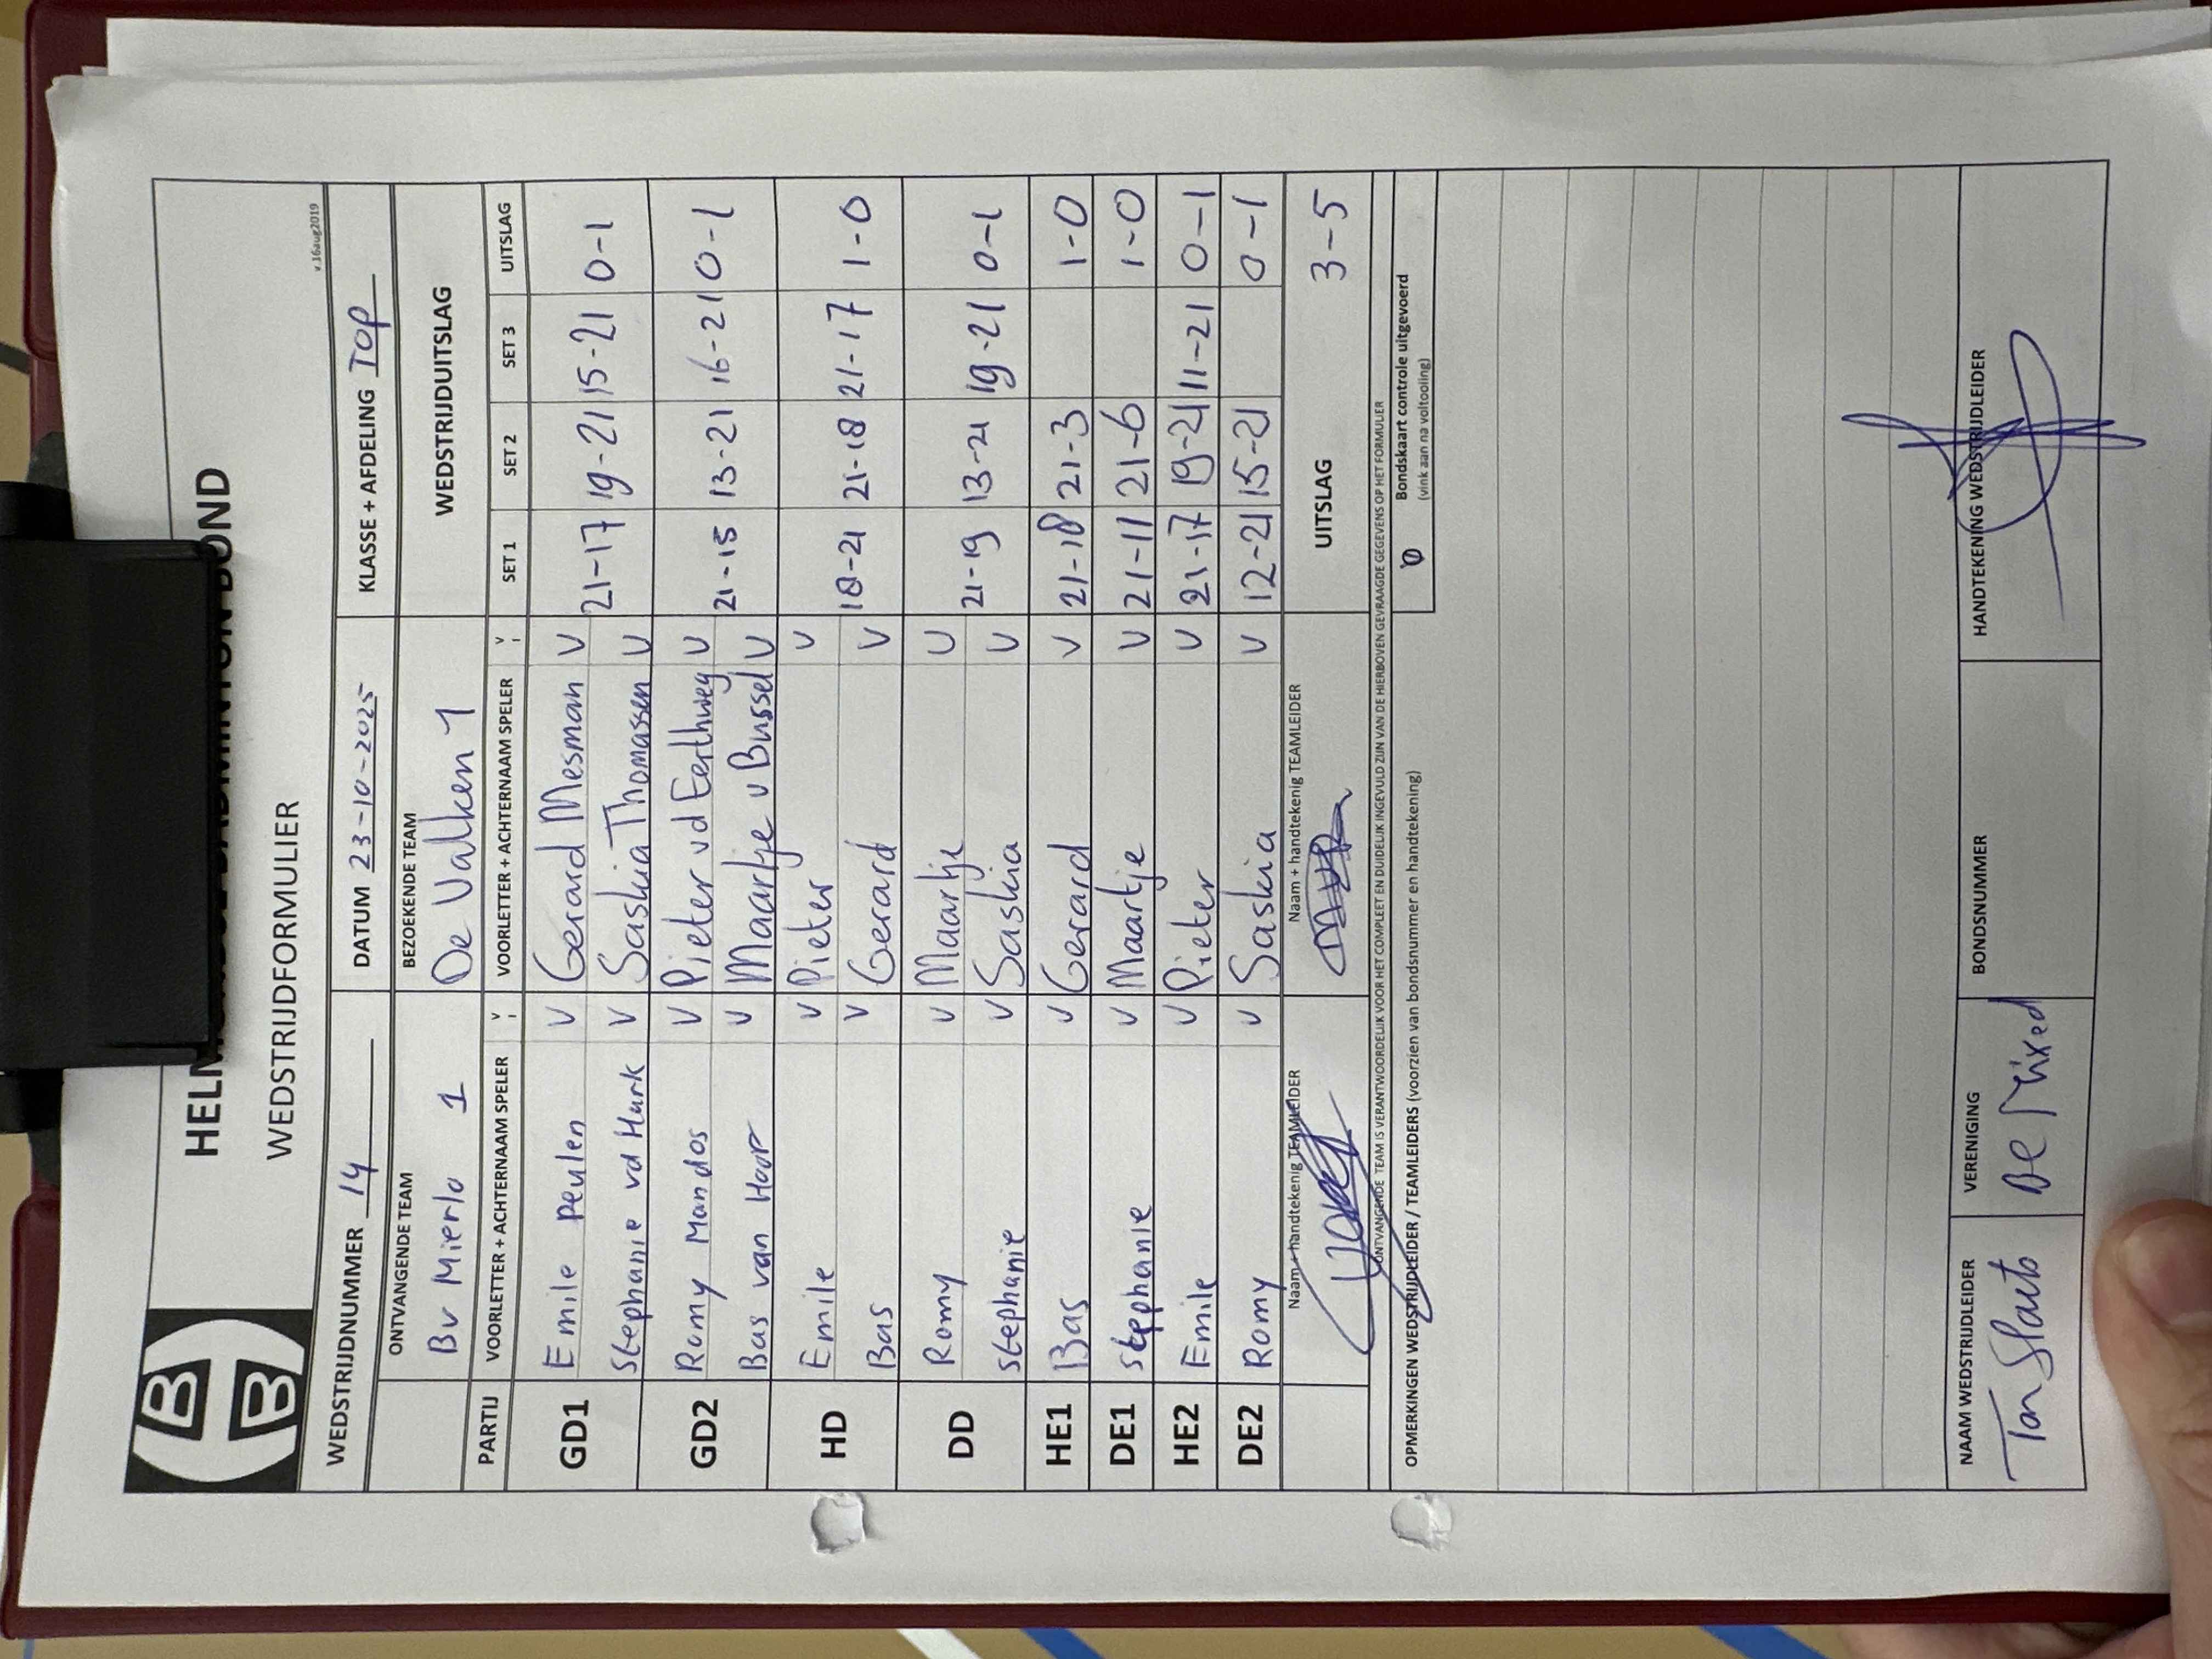 v.16aug2019
WEDSTRIJDFORMULIER
WEDSTRIJDNUMMER 14 DATUM 23-10-2025 KLASSE + AFDELING TOP
ONTVANGENDE TEAM BEZOEKENDE TEAM WEDSTRIJDUITSLAG
BV Mierlo 1 De Valken 1
PARTIJ VOORLETTER + ACHTERNAAM SPELER V VOORLETTER + ACHTERNAAM SPELER V SET 1 SET 2 SET 3 UITSLAG
GD1 Emile Peulen V Gerard Mesman V 21-17 19-21 15-21 0-1
Stephanie vd Hurk V Saskia Thomassen V
GD2 Romy Mandos V Pieter vd Eerthweg V 21-15 13-21 16-21 0-1
Bas van Hoor V Maartje v Bussel V
HD Emile V Pieter V 18-21 21-18 21-17 1-0
Bas V Gerard V
DD Romy V Maartje V 21-19 13-21 19-21 0-1
Stephanie V Saskia V
HE1 Bas V Gerard V 21-18 21-3 1-0
DE1 Stephanie V Maartje V 21-11 21-6 1-0
HE2 Emile V Pieter V 21-17 19-21 11-21 0-1
DE2 Romy V Saskia V 12-21 15-21 0-1
Naam + handtekenig TEAMLEIDER Naam + handtekenig TEAMLEIDER UITSLAG 3-5
ONTVANGENDE TEAM IS VERANTWOORDELIJK VOOR HET COMPLEET EN DUIDELIJK INGEVULD ZIJN VAN DE HIERBOVEN GEVRAAGDE GEGEVENS OP HET FORMULIER
OPMERKINGEN WEDSTRIJDLEIDER / TEAMLEIDERS (voorzien van bondsnummer en handtekening) Bondskaart controle uitgevoerd
(vink aan na voltooiing)
NAAM WEDSTRIJDLEIDER VERENIGING BONDSNUMMER HANDTEKENING WEDSTRIJDLEIDER
Ton De Mixed